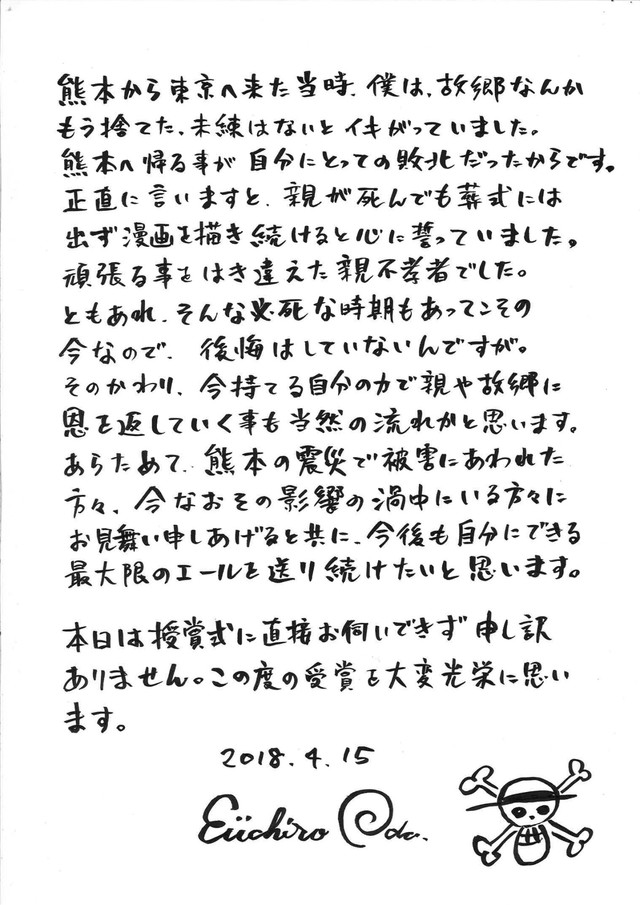 熊本から東京へ来た当時、僕は、故郷なんか
もう捨てた、未練はないとイキがっていました。
熊本へ帰る事が自分にとっての敗北だったからです。
正直に言いますと、親が死んでも葬式には
出ず漫画を描き続けると心に誓っていました。
頑張る事をはき違えた親不孝者でした。
ともあれ、そんな必死な時期もあってこその
今なので、後悔はしていないんですが。
そのかわり、今持てる自分の力で親や故郷に
恩を返していく事も当然の流れかと思います。
あらためて、熊本の震災で被害にあわれた
方々、今なおその影響の渦中にいる方々に
お見舞い申しあげると共に、今後も自分にできる
最大限のエールを送り続けたいと思います。
本日は授賞式に直接お伺いできず申し訳
ありません。この度の受賞を大変光栄に思い
ます。
2018.4.15
Eiichiro Oda.